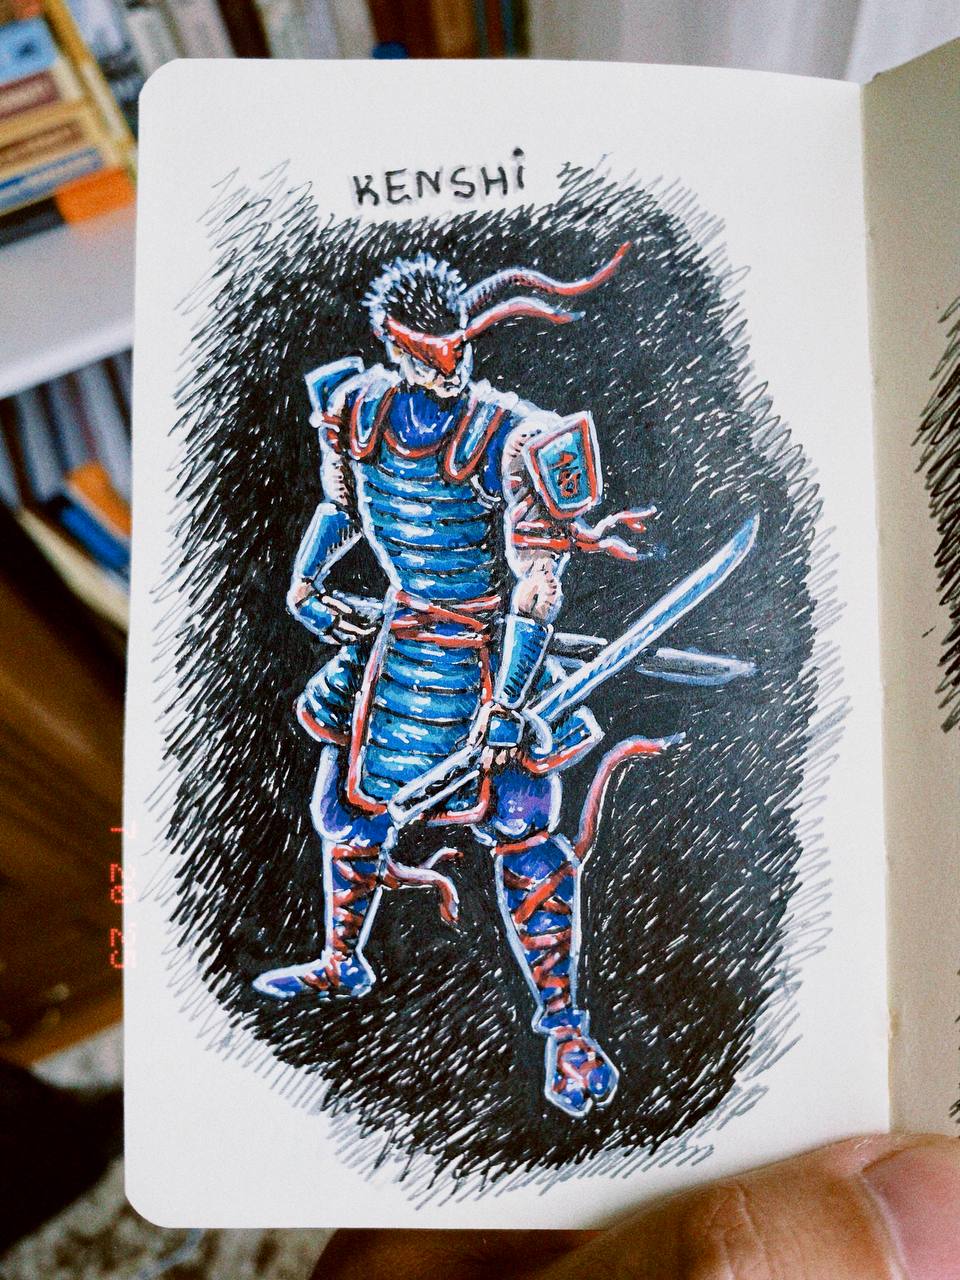 KENSHi
7 20 23